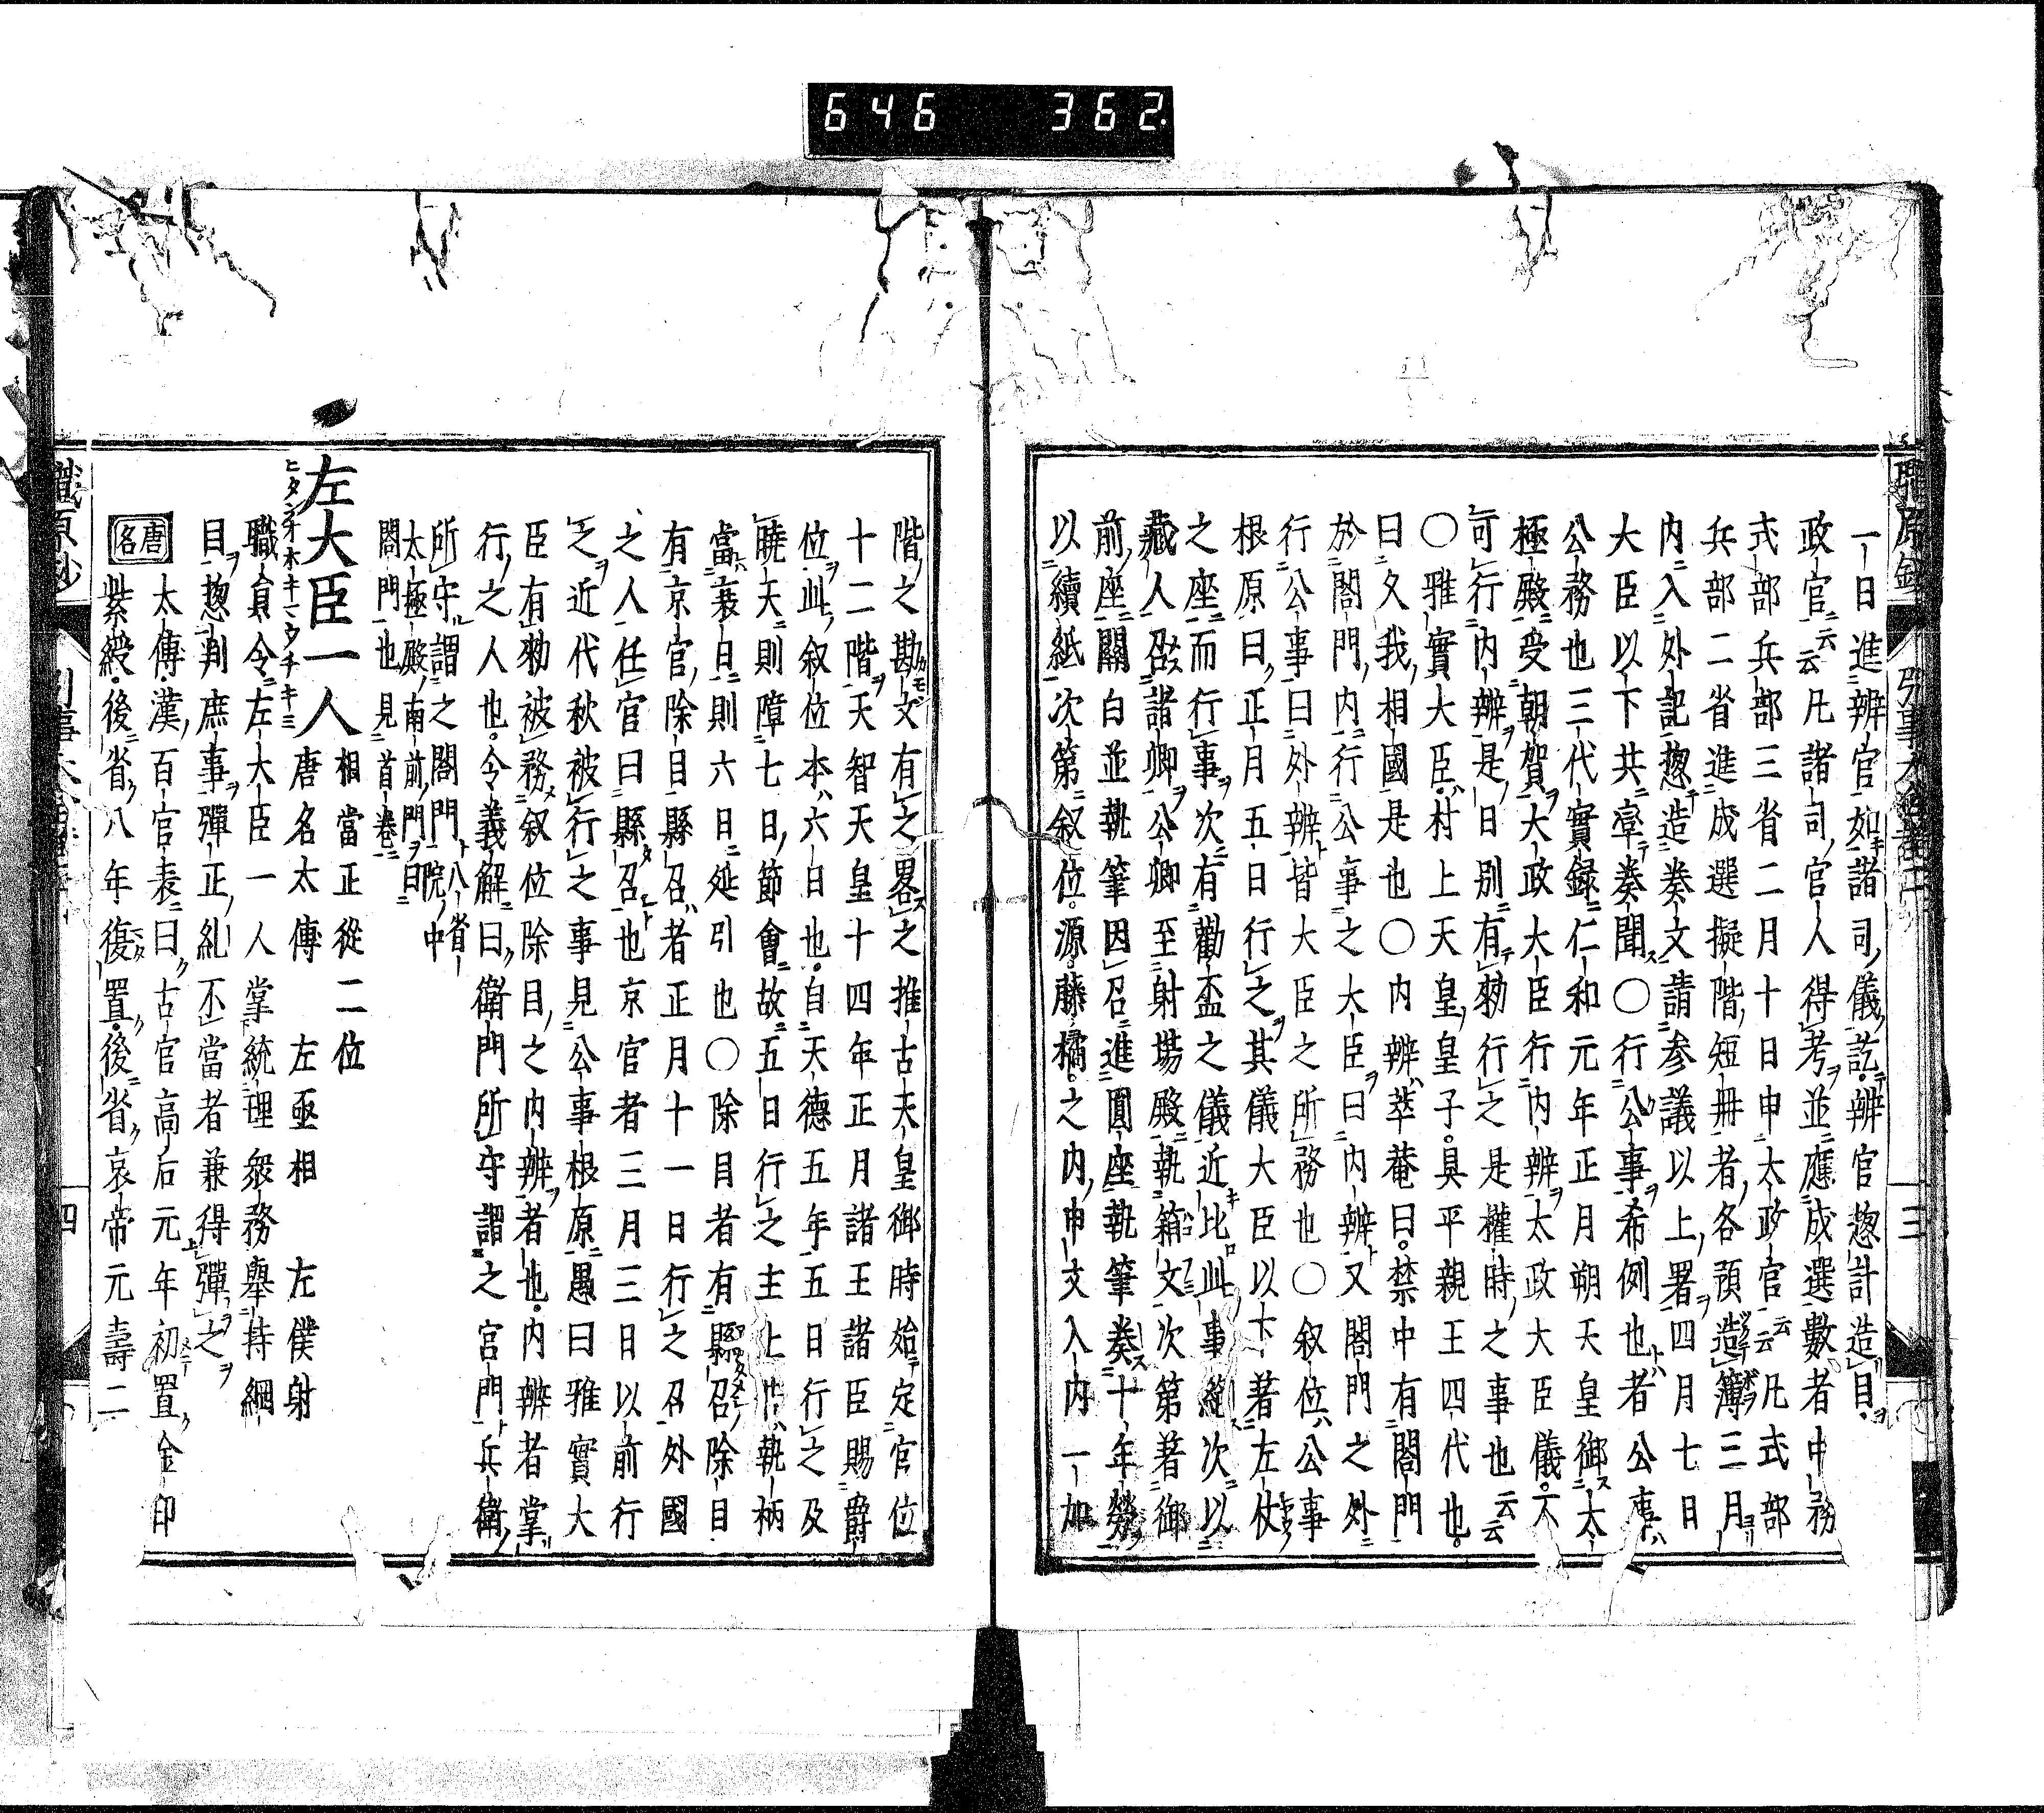 646 362.
一日進辨官如諸司儀訖辨官惣計造目
政官云云凡諸司官人得考並應成選數者中務
式部兵部三省二月十日申太政官云云凡式部
兵部二省進成選擬階短冊者各預造簿三月
内入外記惣造奏文請参議以上署四月七日
大臣以下共率奏聞〇行公事希例也者公事
公務也三代實録仁和元年正月朔天皇御太
極殿受朝賀大政大臣行内辨太政大臣儀不
可行内辨是日別有勅行之是權時之事也云云
〇雅實大臣村上天皇皇子具平親王四代也
曰久我相國是也〇内辨萃菴曰禁中有閤門
於閤門内行公事之大臣曰内辨又閤門之外
行公事曰外辨皆大臣之所務也〇叙位公事
根原曰正月五日行之其儀大臣以下著左仗
之座而行事次有勸盃之儀近比此事絶次以
藏人召諸卿公卿至射場殿執箱文次第著御
前座關白並執筆因召進圓座執筆奏十年勞
以續紙次第叙位源藤橘之内申文入内一加
階之勘文有之畧之推古天皇御時始定官位
十二階天智天皇十四年正月諸王諸臣賜爵
位此叙位本六日也自天德五年五日行之及
曉天則障七日節會故五日行之主上忄執柄
當衰日則六日延引也〇除目者有縣召除目
有京官除目縣召者正月十一日行之召外國
之人任官曰縣召也京官者三月三日以前行
之近代秋被行之事見公事根原愚曰雅實大
臣有勅被務叙位除目之内辨者也内辨者掌
行之人也令義解曰衛門所守謂之宮門兵衛
所守謂之閤門八省院中
太極殿南前門曰
閤門也見首卷
左大臣一人 相當正從二位
ヒタンオホキマウチキミ 唐名太傅 左亟相 左僕射
職員令左大臣一人掌統理衆務舉持綱
目惣判庶事彈正糺不當者兼得彈之
太傅漢百官表曰古官高后元年初置金印
唐名 紫綬後省八年復置後省哀帝元壽二
三
四